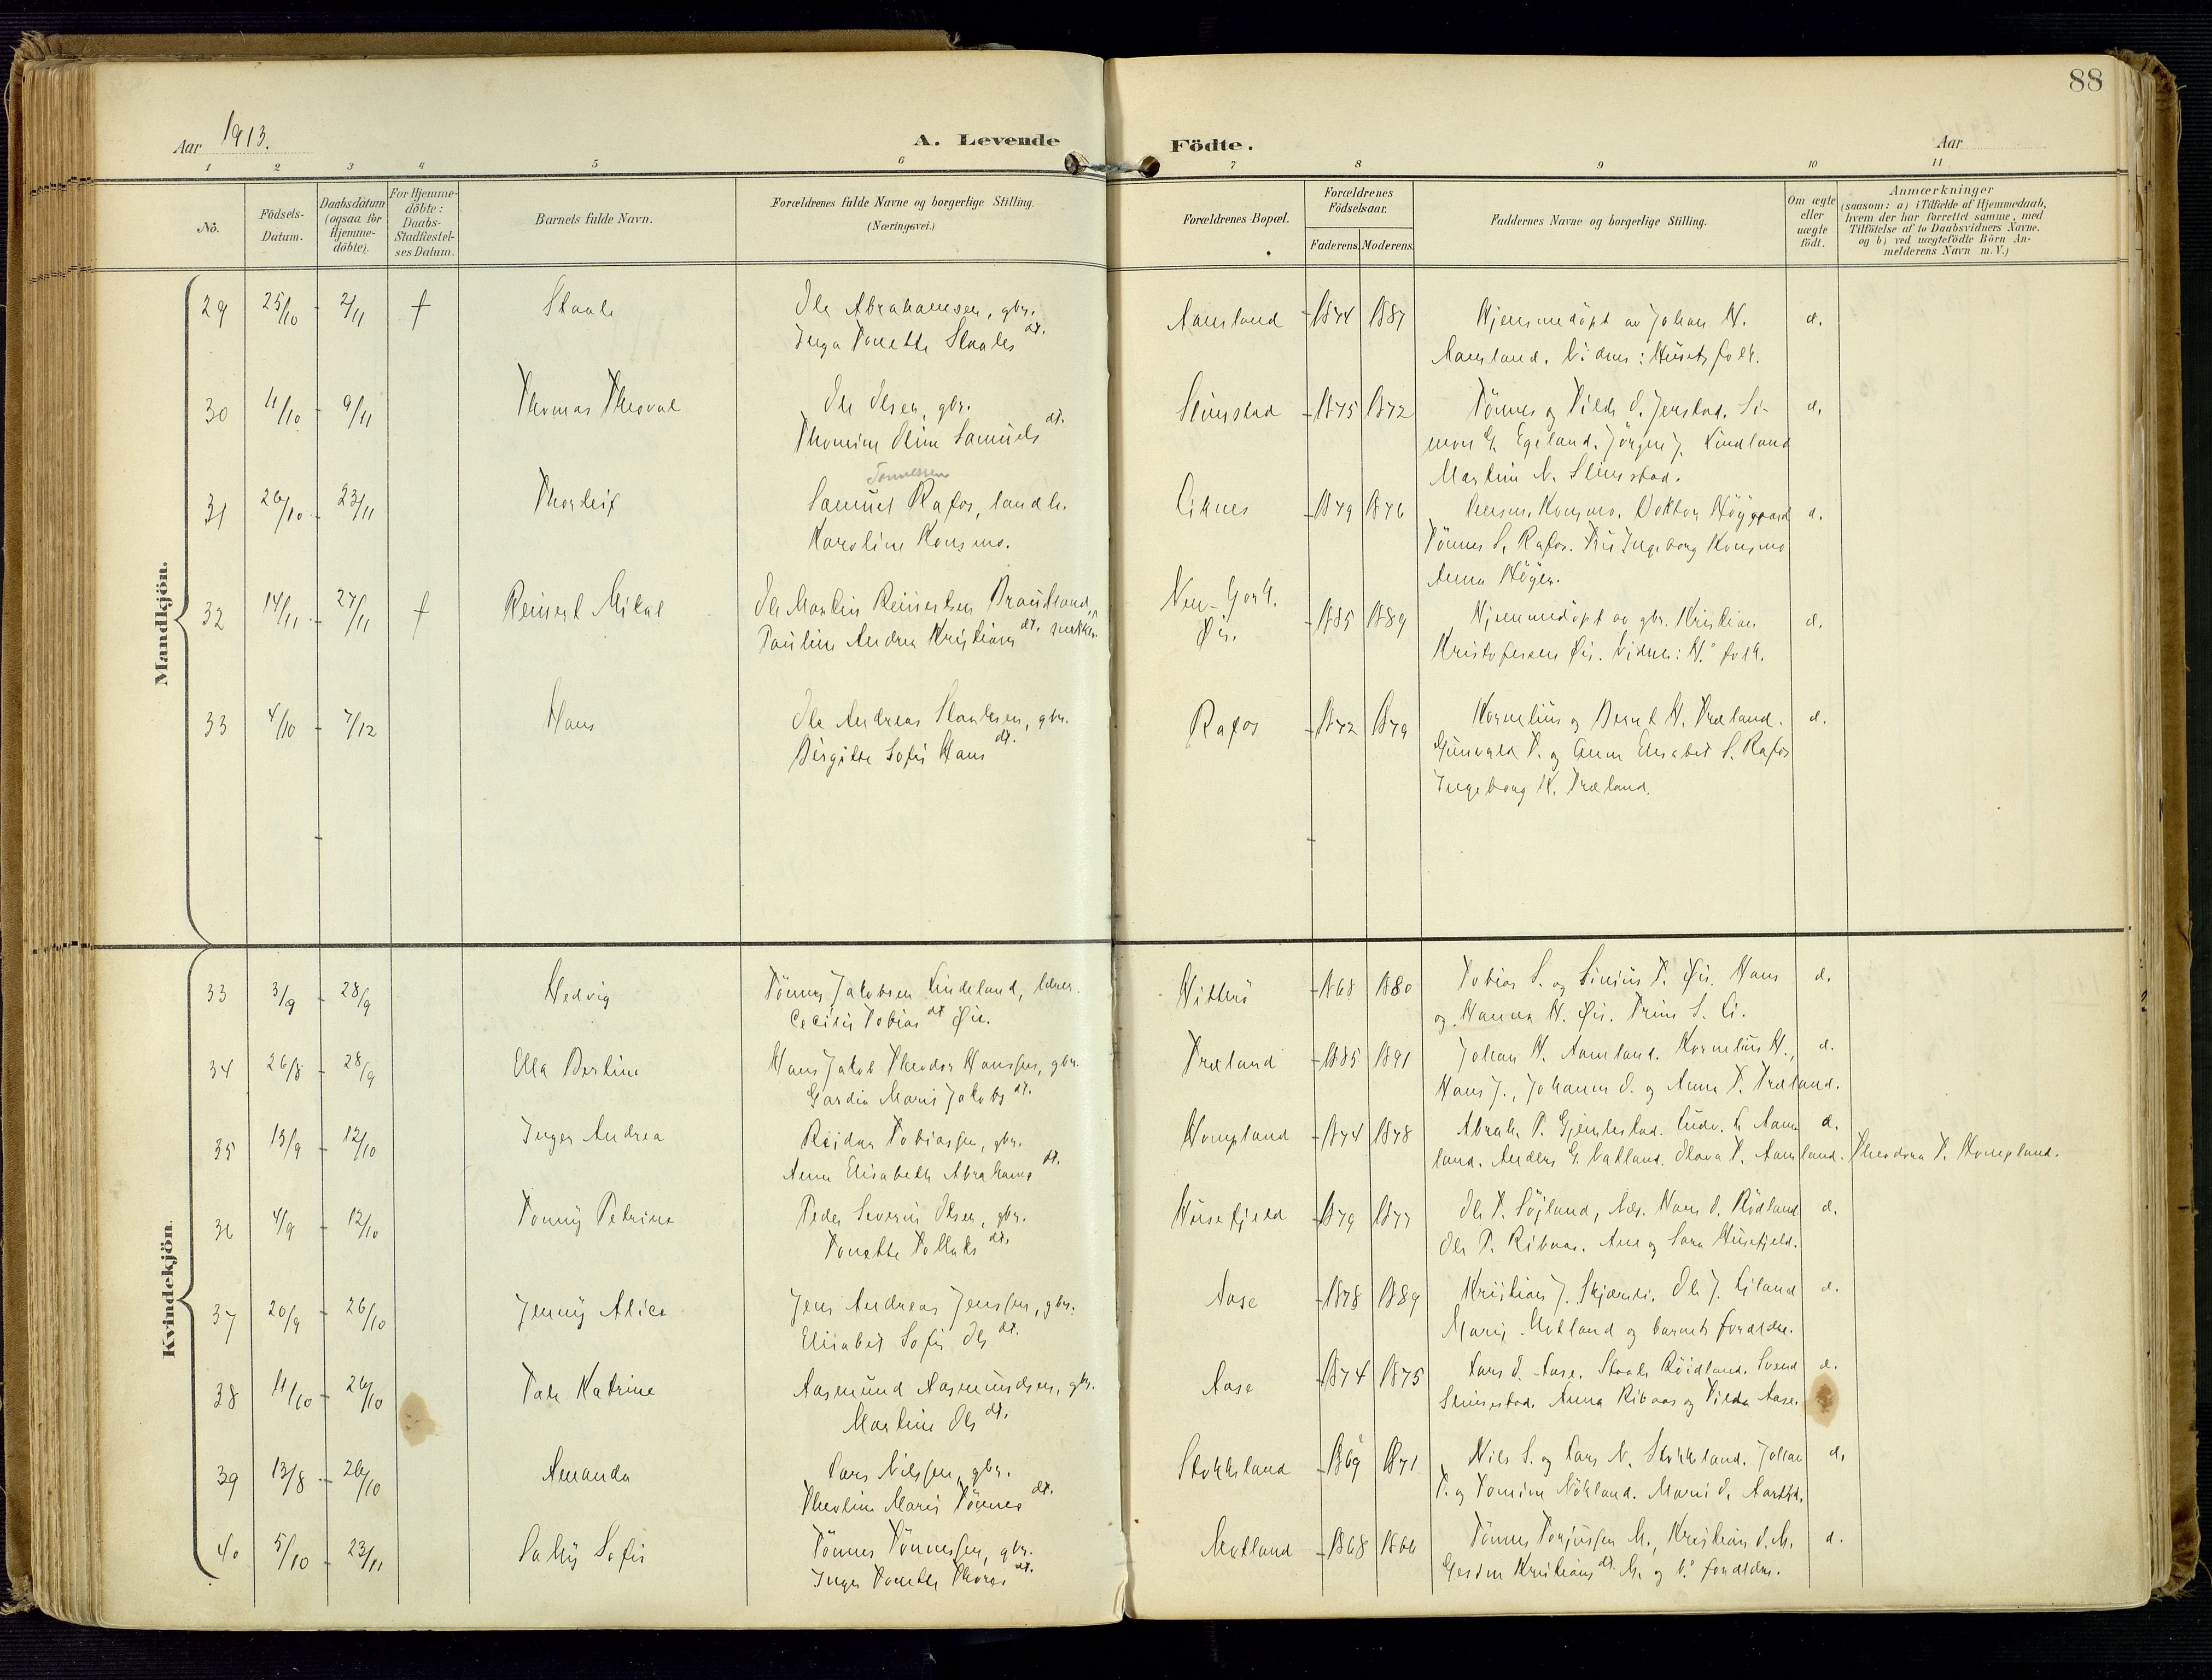 88
Aar 1913.
A. Levende Födte.
Aar
1 2 3 4 5 6 7 8 9 10 11
No.
Födsels-Datum.
Daabsdatum (ogsaa for Hjemme-döbte).
For Hjemme-döbte: Daabs-Stadfæstel-ses Datum.
Barnets fulde Navn.
Forældrenes fulde Navne og borgerlige Stilling.
(Næringsvei.)
Forældrenes Bopæl.
Forældrenes Födselsaar.
Faderens. Moderens.
Faddernes Navne og borgerlige Stilling.
Om ægte eller uægte födt.
Anmærkninger
(saasom: a) i Tilfælde af Hjemmedaab,
hvem der har forrettet samme, med
Tilföielse af to Daabsvidners Navne.
og b) ved uægtefödte Börn An-
melderens Navn m. V.)
Mandkjön.
29 25/10 - 2/11 † Staale Ole Abrahamsen, gbr. Aamland 1874 1887 Hjemmedöpt av Johan H.
Inga Tonette Staales dt. Aamland. Vidner: Husets folk.
30 11/10 - 9/11 Thomas Theoval Ole Olsen, gbr. Stimstad 1875 1872 Tönnes og Tilda O. Jerstad. Si-
Thomine Oline Samuels dt. mon G. Egeland. Jörgen J. Lindland
Martin N. Stimstad.
Tønnessen
31 26/10 - 23/11 Thorleif Samuel Rafos, landh. Liknes 1879 1876 Konsmo. Doktor Höygaard
Karoline Konsmo. Tönnes S. Rafos. Ingeborg Konsmo
Anna Höyer.
32 14/11 - 27/11 † Reinert Mikal Ole Martin Reinertsen Braudland, snekker New-York. 1885 1889 Hjemmedöpt av gbr. Kristian
Pauline Andrea Kristians dt. Øie. Kristofersen Øie. Vidner: H.s folk.
33 4/10 - 7/12 Hans Ole Andreas Staalesen, gbr. Rafos 1872 1879 Kornelius og Bernt H. Træland.
Birgitte Sofie Hans dt. Gunvald T. og Anna Elisabet S. Rafos
Ingeborg K. Træland.
Kvindekjön.
33 3/9 - 28/9 Hedvig Tönnes Jakobsen Lindeland, lærer. Hitterö 1868 1880 Tobias S. og Sinius T. Øie. Hans
Cecilie Tobias dt Øie. og Hanna H. Øie. Trine S. Li.
34 26/8 - 28/9 Ella Bertine Hans Jakob Theodor Hanssen, gbr. Træland 1885 1891 Johan H. Aamland. Kornelius H.,
Gardia Marie Jakobs dt. Hans J., Johanne O. og Anna T. Træland.
35 13/9 - 12/10 Inger Andrea Reidar Tobiassen, gbr. Hompland 1874 1878 Abrah. P. Gjemlestad. Ludv. L. Aam-
Anna Elisabeth Abrahams dt. land. Anders G. Vatland. Olava T. Aamland. Theodora T. Hompland.
36 4/9 - 12/10 Tonny Petrine Peder Severin Olsen, gbr. Husefjeld 1879 1877 Ole T. Söyland, Hans O. Rödland
Tonette Tollaks dt. Ole P. Ribaas. Ane og Sara Husefjeld.
37 20/9 - 26/10 Jenny Alice Jens Andreas Jenssen, gbr. Aase 1878 1889 Kristian J. Ole J. Eiland
Elisabet Sofie Ols dt. Marie Motland og barnets forældre.
38 11/10 - 26/10 Tale Katrine Aasmund Aasmundsen, gbr. Aase 1874 1875 Lars O. Aase. Staale Röidland. Svend
Martine Ols dt. Stimestad. Anna Ribaas og Tilda Aase.
39 13/8 - 26/10 Amanda Lars Nilssen, gbr. Stokkeland 1869 1871 Nils S. og Lars N. Stokkeland. Johan
Theoline Marie Tönnes dt. T. og Tomine Nökland. Marie O.
40 5/10 - 23/11 Sally Sofie Tönnes Tönnessen, gbr. Motland 1868 1866 Tönnes Torjussen M., Kristian O. M.
Inger Tonette Thoras dt. Kristians dt. M. og b.s forældre.